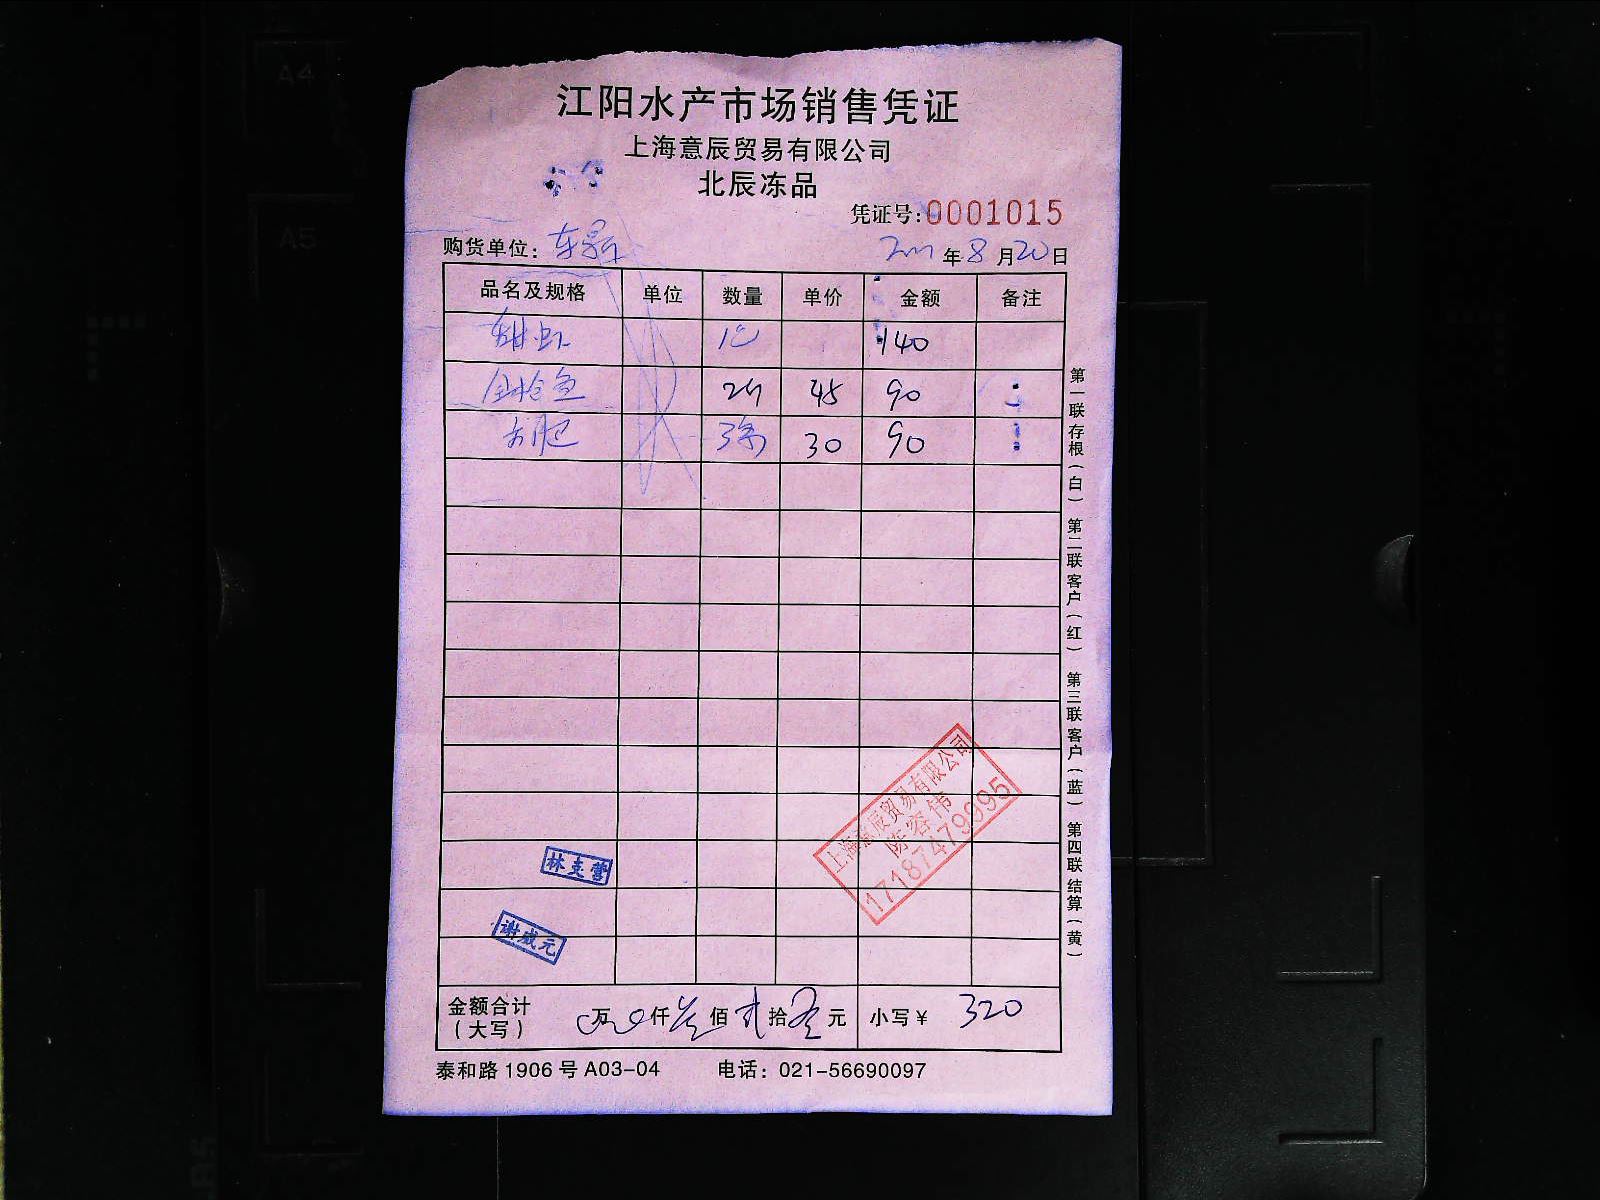 江阳水产市场销售凭证
上海意辰贸易有限公司
北辰冻品
凭证号:0001015
购货单位:
年 8 月 20 日
品名及规格 单位 数量 单价 金额 备注
甜虾 140
金枪鱼 45 90
30 90
第一联存根(白) 第二联客户(红) 第三联客户(蓝) 第四联结算(黄)
上海意辰贸易有限公司
陈容伟
17187479995
林克营
谢成元
金额合计 万 仟 叁 佰 贰 拾 元 小写¥ 320
(大写)
泰和路1906号A03-04 电话:021-56690097
A4
A5